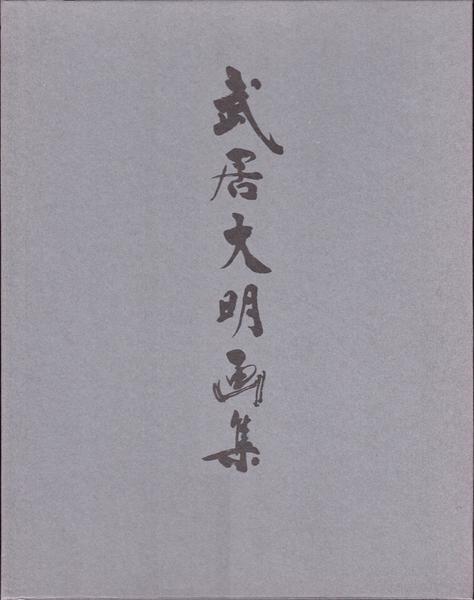 武居大明画集